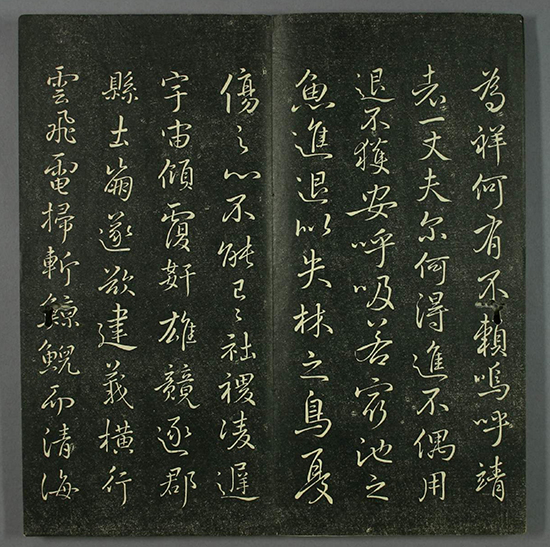 為祥何有不賴嗚呼靖
者一丈夫尔何得進不偶用
退不獲安呼吸若窮池之
魚進退以失林之鳥憂
傷之心不能已々社稷凌遲
宇宙傾覆奸雄競逐郡
縣土崩遂欲建義橫行
雲飛電掃斬鯨鯢而清海